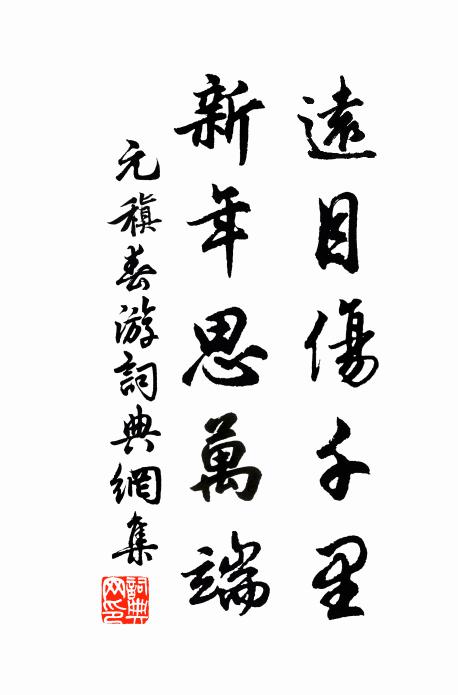 遠目傷千里
新年思萬端
元稹春游詞典網集
詞典網印